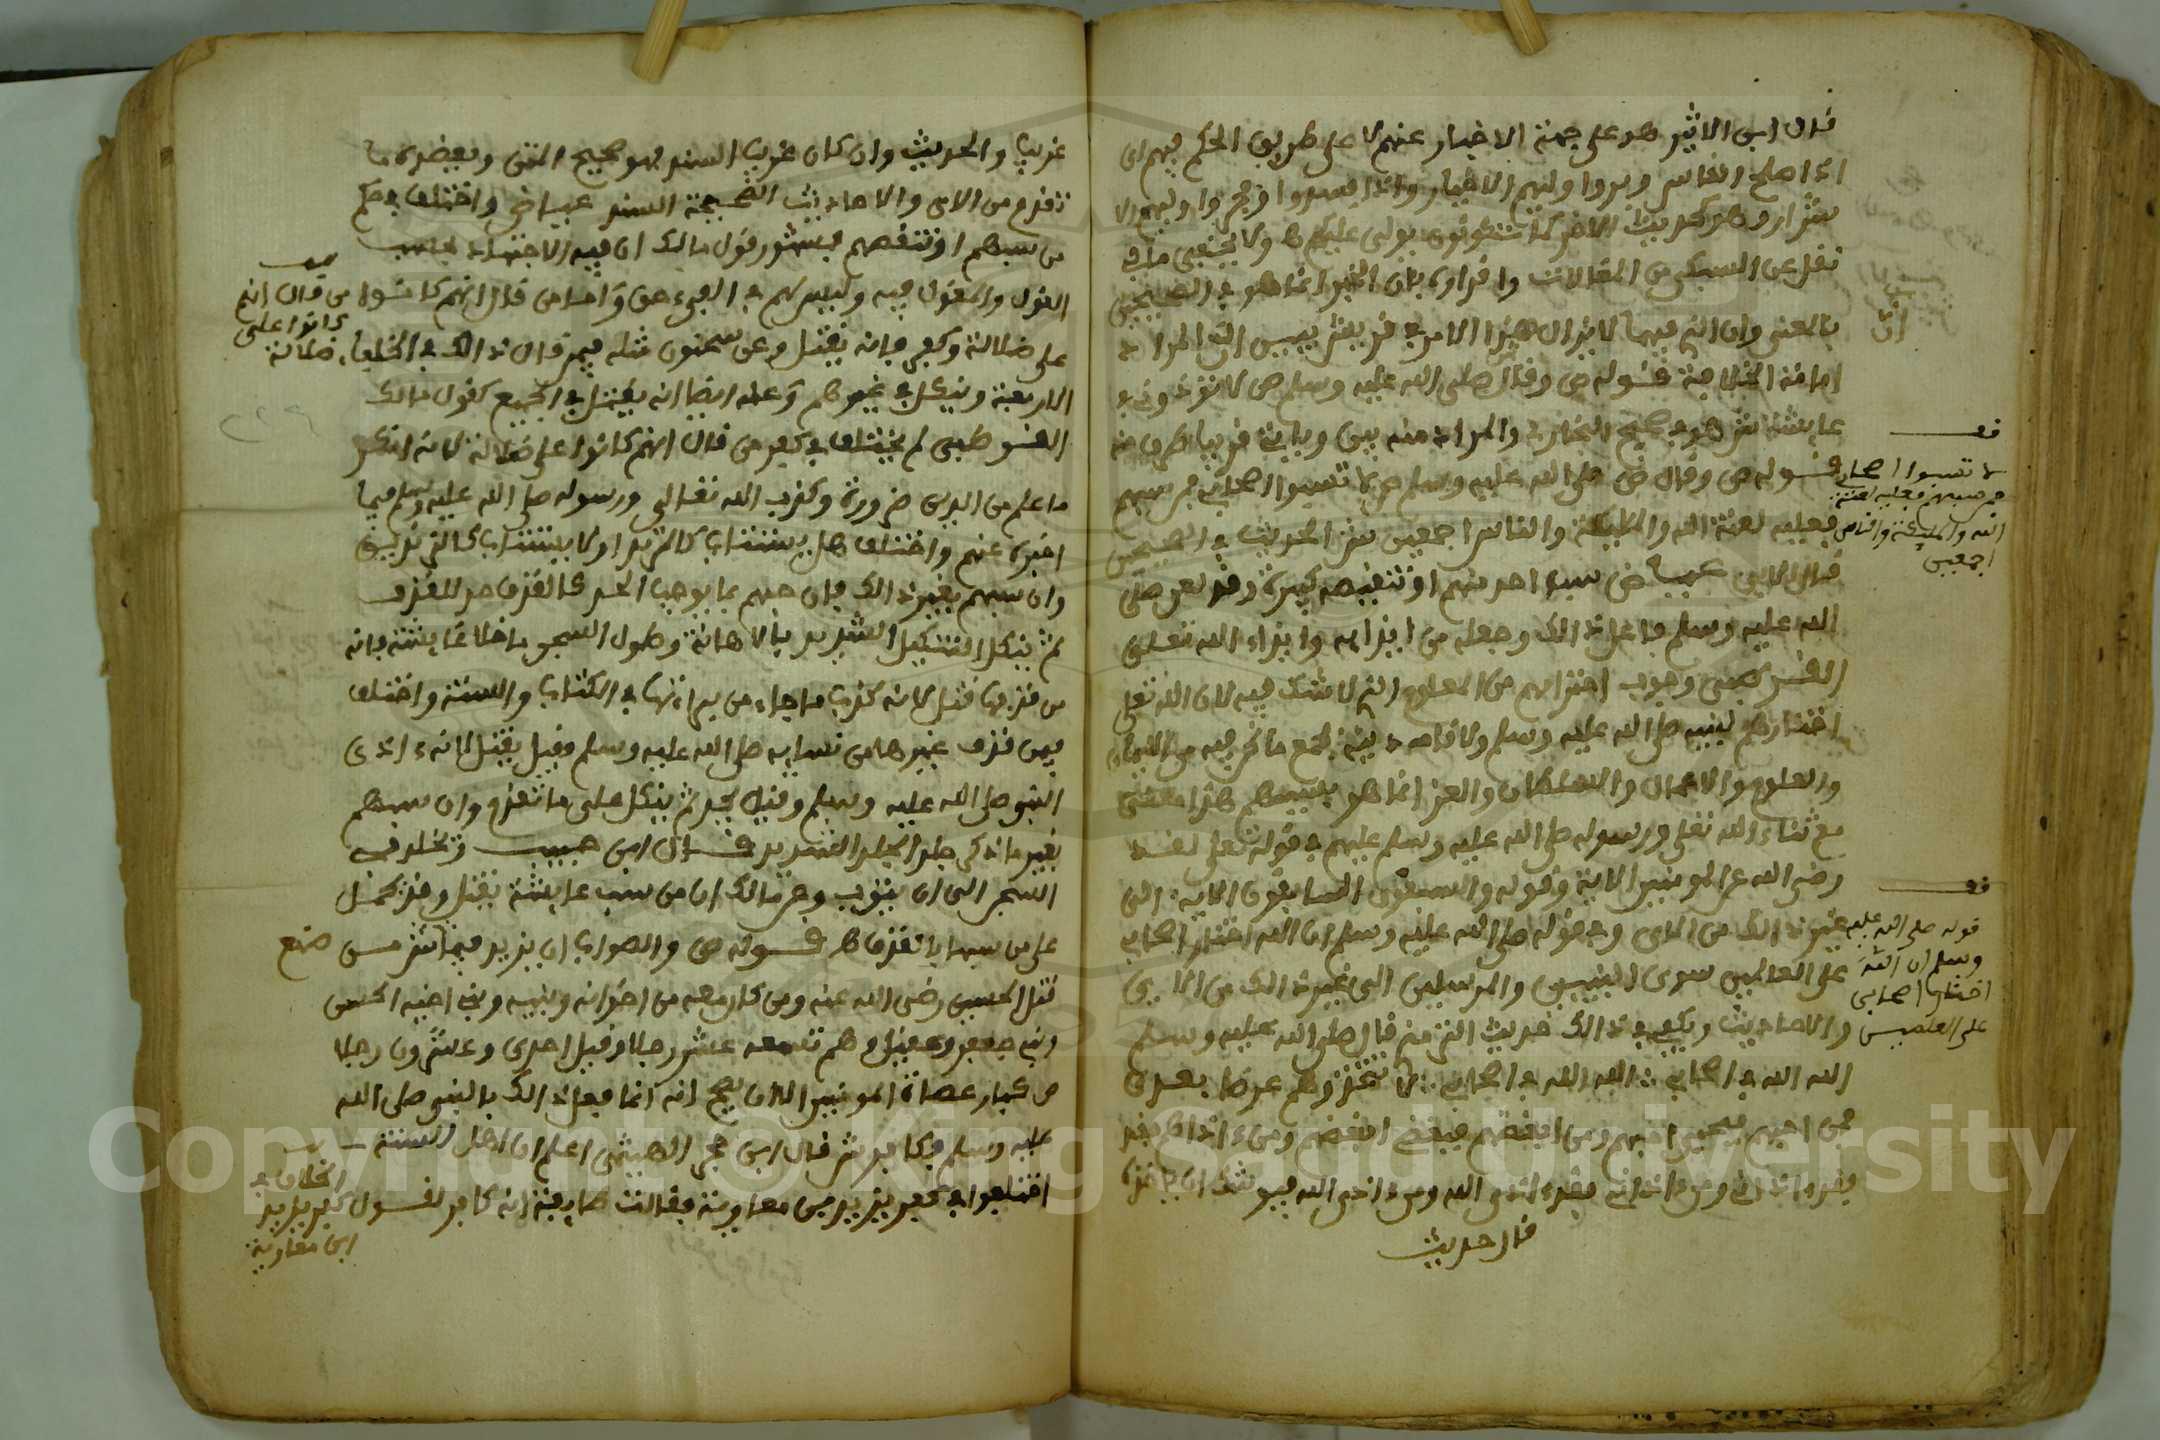 قال ابن الاثير هو على جهة الاخبار عنهم لا على طريق الحكم فيهم اي
اذا صلح الناس وبروا وليهم الاخيار واذا فسدوا وفجروا وليهم الا
شرار وهو كحديث الاخر كما تكونون يولى عليكم ولا يخفى ما في
نقل عن السبكي من المقالات وافراده بان الخبر انما هو في الصحيحين
بالمعنى وان الذي فيهما لا يزال هذا الامر في قريش يبين ان المراد
امامة الخلافة قوله ص وقال صلى الله عليه وسلم ص لا تؤذوني في
عايشة ش هو في صحيح البخاري والمراد منه بين وياتي قريبا طرف منه
قوله ص وقال ص صلى الله عليه وسلم ص لا تسبوا اصحابي فمن سبهم
فعليه لعنة الله والمليكة والناس اجمعين ش الحديث في الصحيحين
قال الابي عياض سب احد منهم او تنقيصه كبيرة وقد لعن صلى
الله عليه وسلم فاعل ذالك وجعله من ايذايه وايذاء الله تعلى
القرطبي وجوب احترامهم من المعلوم الذي لا شك فيه لان الله تعلى
اختارهم لنبيه صلى الله عليه وسلم ولاقامة دينه فجميع ما نحن فيه من
والعلوم والاعمال والسلطان والعز انما هو بسببهم هذا
مع ثناء الله تعلى ورسوله صلى الله عليه وسلم عليهم في قوله تعلى لقد
رضي الله عن المومنين الاية وقوله والسبقون السابقون الاية الى
غير ذالك من الاي وفي قوله صلى الله عليه وسلم ان الله اختار اصحابي
على العالمين سوى النبيين والمرسلين الى غير ذالك من الاي
والاحاديث ويكفي في ذالك حديث الترمذي قال صلى الله عليه وسلم
الله الله في اصحابي الله الله في اصحابي لا تتخذوهم غرضا بعدي
فمن احبهم فبحبي احبهم ومن ابغضهم فببغضي ابغضهم ومن اذاهم فقد
فقد اذاني ومن اذاني فقد اذى الله ومن اذى الله فيوشك ان ياخذه
قال حديث
ان
قف
لا تسبوا اصحابي
فمن سبهم فعليه لعنة
الله والمليكة والناس
اجمعين
قف
قوله صلى الله عليه
وسلم ان الله
اختار اصحابي
على العلمين
غريب والحديث وان كان غريب السند فهو صحيح المتن ويعضده ما
تقدم من الاي والاحاديث الصحيحة السند عياض واختلف في حكم
من سبهم او تنقصهم فمشهور قول مالك ان فيه الاجتهاد بحسب
القول والمقول فيه وليس لهم في الفيء حق واما من قال انهم كانوا
على ضلالة وكفر فانه يقتل وعن سحنون مثله فيمن قال ذالك في الخلفاء
الاربعة وينكل في غيرهم وعنه ايضا انه يقتل في الجميع كقول مالك
القرطبي لم يختلف في كفر من قال انهم كانوا على ضلالة لانه انكر
ما علم من الدين ضرورة وكذب الله تعالى ورسوله صلى الله عليه وسلم فيما
اخبر عنهم واختلف هل يستتاب كالمرتد او لا يستتاب كالزنديق
وان سبهم بغير ذالك فان سبهم بما يوجب الحد كالقذف حد للقذف
ثم ينكل التنكيل الشديد بالاهانة وطول السجن ما خلا عايشة فانه
من قذفها قتل لانه كذب ما جاء من براءتها في الكتاب والسنة واختلف
فيمن قذف غيرها من نسايه صلى الله عليه وسلم فقيل يقتل لانه ءاذى
النبي صلى الله عليه وسلم وقيل يحد ثم ينكل على ما تقدم وان سبهم
بغير ما ذكر جلد الجلد الشديد قال ابن حبيب ويخلد في
السجن الى ان يتوب وعن مالك ان من سب عايشة يقتل وقد حمل
على من سبها بالقذف قوله ص والصواب ان يزيد فيما ش من صنع
قتل الحسين رضي الله عنه ومن كان معه من اخوانه وبنيه وبني اخيه الحسن
وبني جعفر وعقيل وهم تسعة عشر رجلا وقيل احدى وعشرون رجلا
من كبار عصاة المومنين الا ان يصح انه انما فعل ذالك بالنبي صلى الله
عليه وسلم فكافر ش قال ابن حجر الهيثمي اعلم ان اهل السنة
اختلفوا في كفر يزيد بن معاوية فقالت طايفة انه كافر لقول
من قال انهم
كانوا على
ضلالة
الخلاف في
كفر يزيد
ابن معاوية